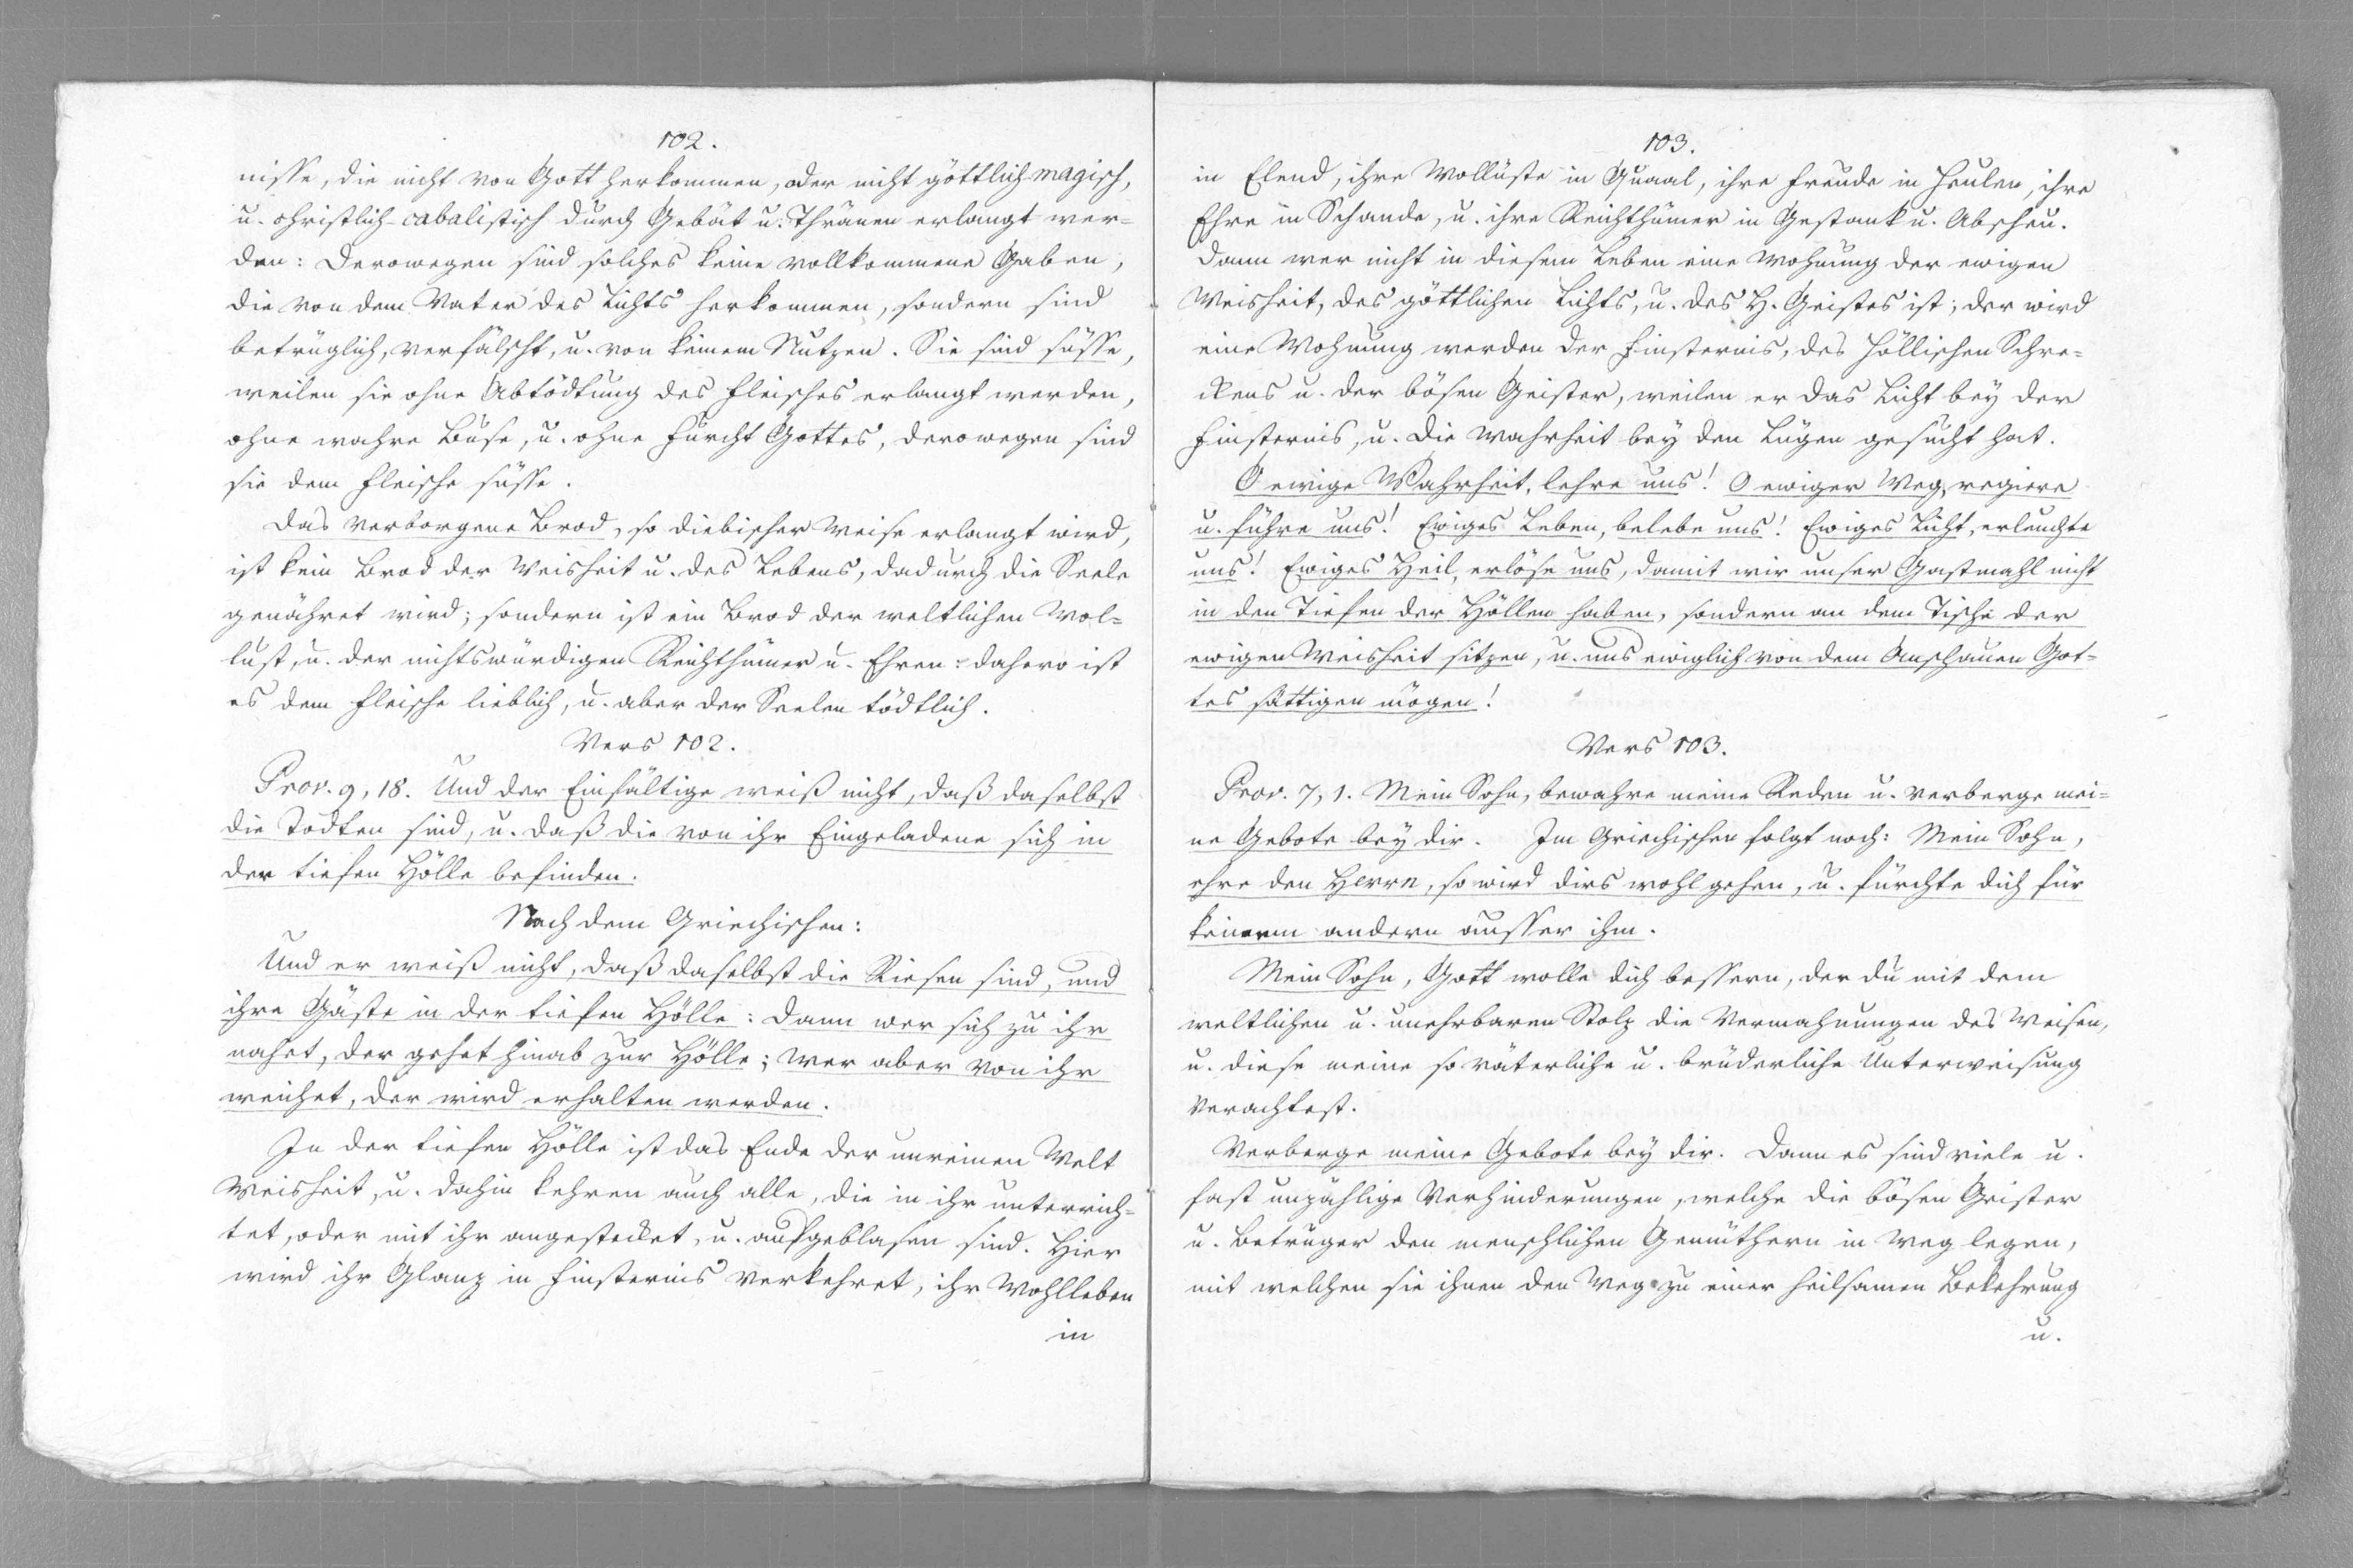 102.
nisse, die nicht von Gott herkommen, oder nicht göttlich-magisch,
u. christlich-cabalistisch durch Gebät u. Thränen erlangt wer-
den: Derowegen sind solches keine vollkommene Gaben,
die von dem Vater des Lichts herkommen, sondern sind
betrüglich, verfälscht, u. von keinem Nutzen. Sie sind süsse,
weilen sie ohne Abtödtung des Fleisches erlangt werden,
ohne wahre Buse, u. ohne Furcht Gottes, derowegen sind
sie dem Fleische süsse.
Das verborgene Brod, so diebischer Weise erlangt wird,
ist kein Brod der Weisheit u. des Lebens, dadurch die Seele
genähret wird; sondern ist ein Brod der weltlichen Wol-
lust, u. der nichtswürdigen Reichthümer u. Ehren: dahero ist
es dem Fleische lieblich, u. aber der Seelen tödtlich.
Vers 102.
Prov. 9, 18. Und der Einfältige weiß nicht, daß daselbst
die Todten sind, u. daß die von ihr Eingeladene sich in
der tiefen Hölle befinden.
Nach dem Griechischen:
Und er weiß nicht, daß daselbst die Riesen sind, und
ihre Gäste in der tiefen Hölle: Dann wer sich zu ihr
nahet, der gehet hinab zur Hölle; wer aber von ihr
weichet, der wird erhalten werden.
In der tiefen Hölle ist das Ende der unreinen Welt
Weisheit, u. dahin kehren auch alle, die in ihr unterrich-
tet, oder mit ihr angesteckt, u. aufgeblasen sind. Hier
wird ihr Glanz in Finsternis verkehret, ihr Wohlleben
in
103.
in Elend, ihre Wollüste in Quaal, ihre Freude in Heulen, ihre
Ehre in Schande, u. ihre Reichthümer in Gestank u. Abscheu.
Dann wer nicht in diesem Leben eine Wohnung der ewigen
Weisheit, des göttlichen Lichts, u. des H. Geistes ist; der wird
eine Wohnung werden der Finsternis, des höllischen Schre-
ckens u. der bösen Geister, weilen er das Licht bey der
Finsternis, u. die Wahrheit bey den Lügen gesucht hat.
O ewige Wahrheit, lehre uns! O ewiger Weg, regiere
u. führe uns! Ewiges Leben, belebe uns! Ewiges Licht, erleuchte
uns! Ewiges Heil, erlöse uns, damit wir unser Gastmahl nicht
in den Tiefen der Höllen haben, sondern an dem Tische der
ewigen Weisheit sitzen, u. uns ewiglich von dem Anschauen Got-
tes sättigen mögen!
Vers 103.
Prov. 7, 1. Mein Sohn, bewahre meine Reden u. verberge mei-
ne Gebote bey dir. Im Griechischen folgt noch: Mein Sohn,
ehre den Herrn, so wird dirs wohl gehen, u. fürchte dich für
keinem andern ausser ihm.
Mein Sohn, Gott wolle dich bessern, der du mit dem
weltlichen u. unehrbaren Stolz die Vermahnungen des Weisen,
u. diese meine so väterliche u. brüderliche Unterweisung
verachtest.
Verberge meine Gebote bey dir. Dann es sind viele u.
fast unzählige Verhinderungen, welche die bösen Geister
u. Betrüger den menschlichen Gemüthern in Weg legen,
mit welchen sie ihnen den Weg zu einer heilsamen Bekehrung
u.